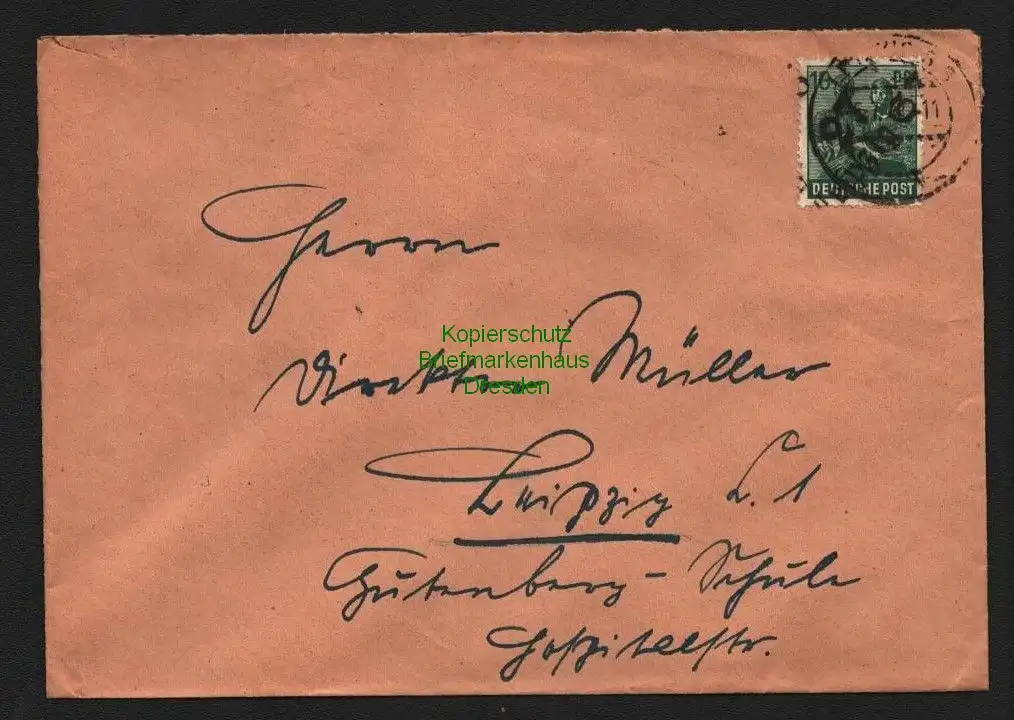 16
DEUTSCHE POST
Herrn
Direktor Müller
Leipzig C. 1
Gutenberg-Schule
Hospitalstr.
Kopierschutz
Briefmarkenhaus
Dresden